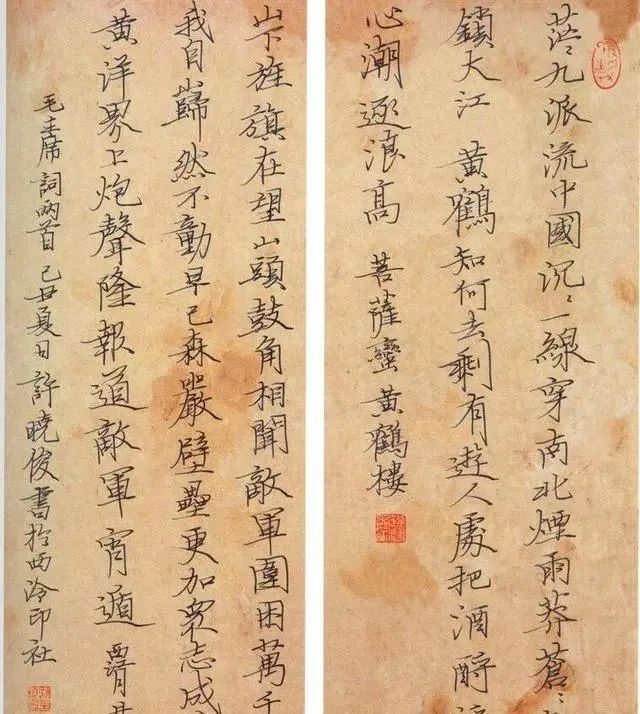 茫〻九派流中國沉〻一線穿南北煙雨莽蒼〻
鎖大江 黄鶴知何去剩有遊人處把酒酹
心潮逐浪高 菩薩蠻 黄鶴樓
山下旌旗在望山頭鼓角相聞敵軍圍困萬千
我自巋然不動早已森嚴壁壘更加衆志成
黄洋界上炮聲隆報道敵軍宵遁
毛主席詞兩首 己丑夏日許曉俊書於西泠印社